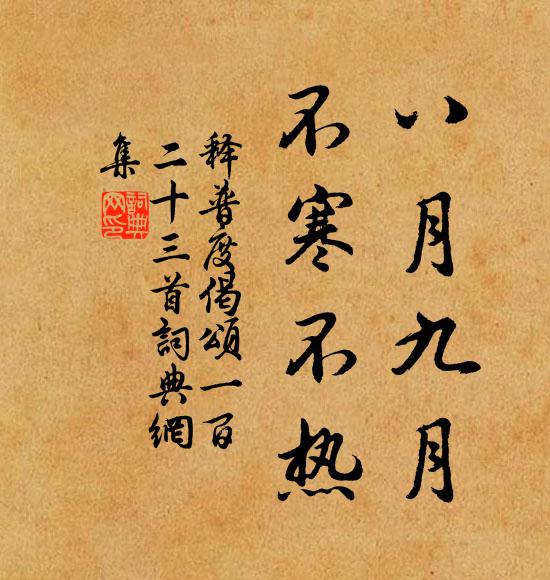 八月九月
不寒不热
释普度偈颂一百
二十三首詞典網
集
詞典
网印